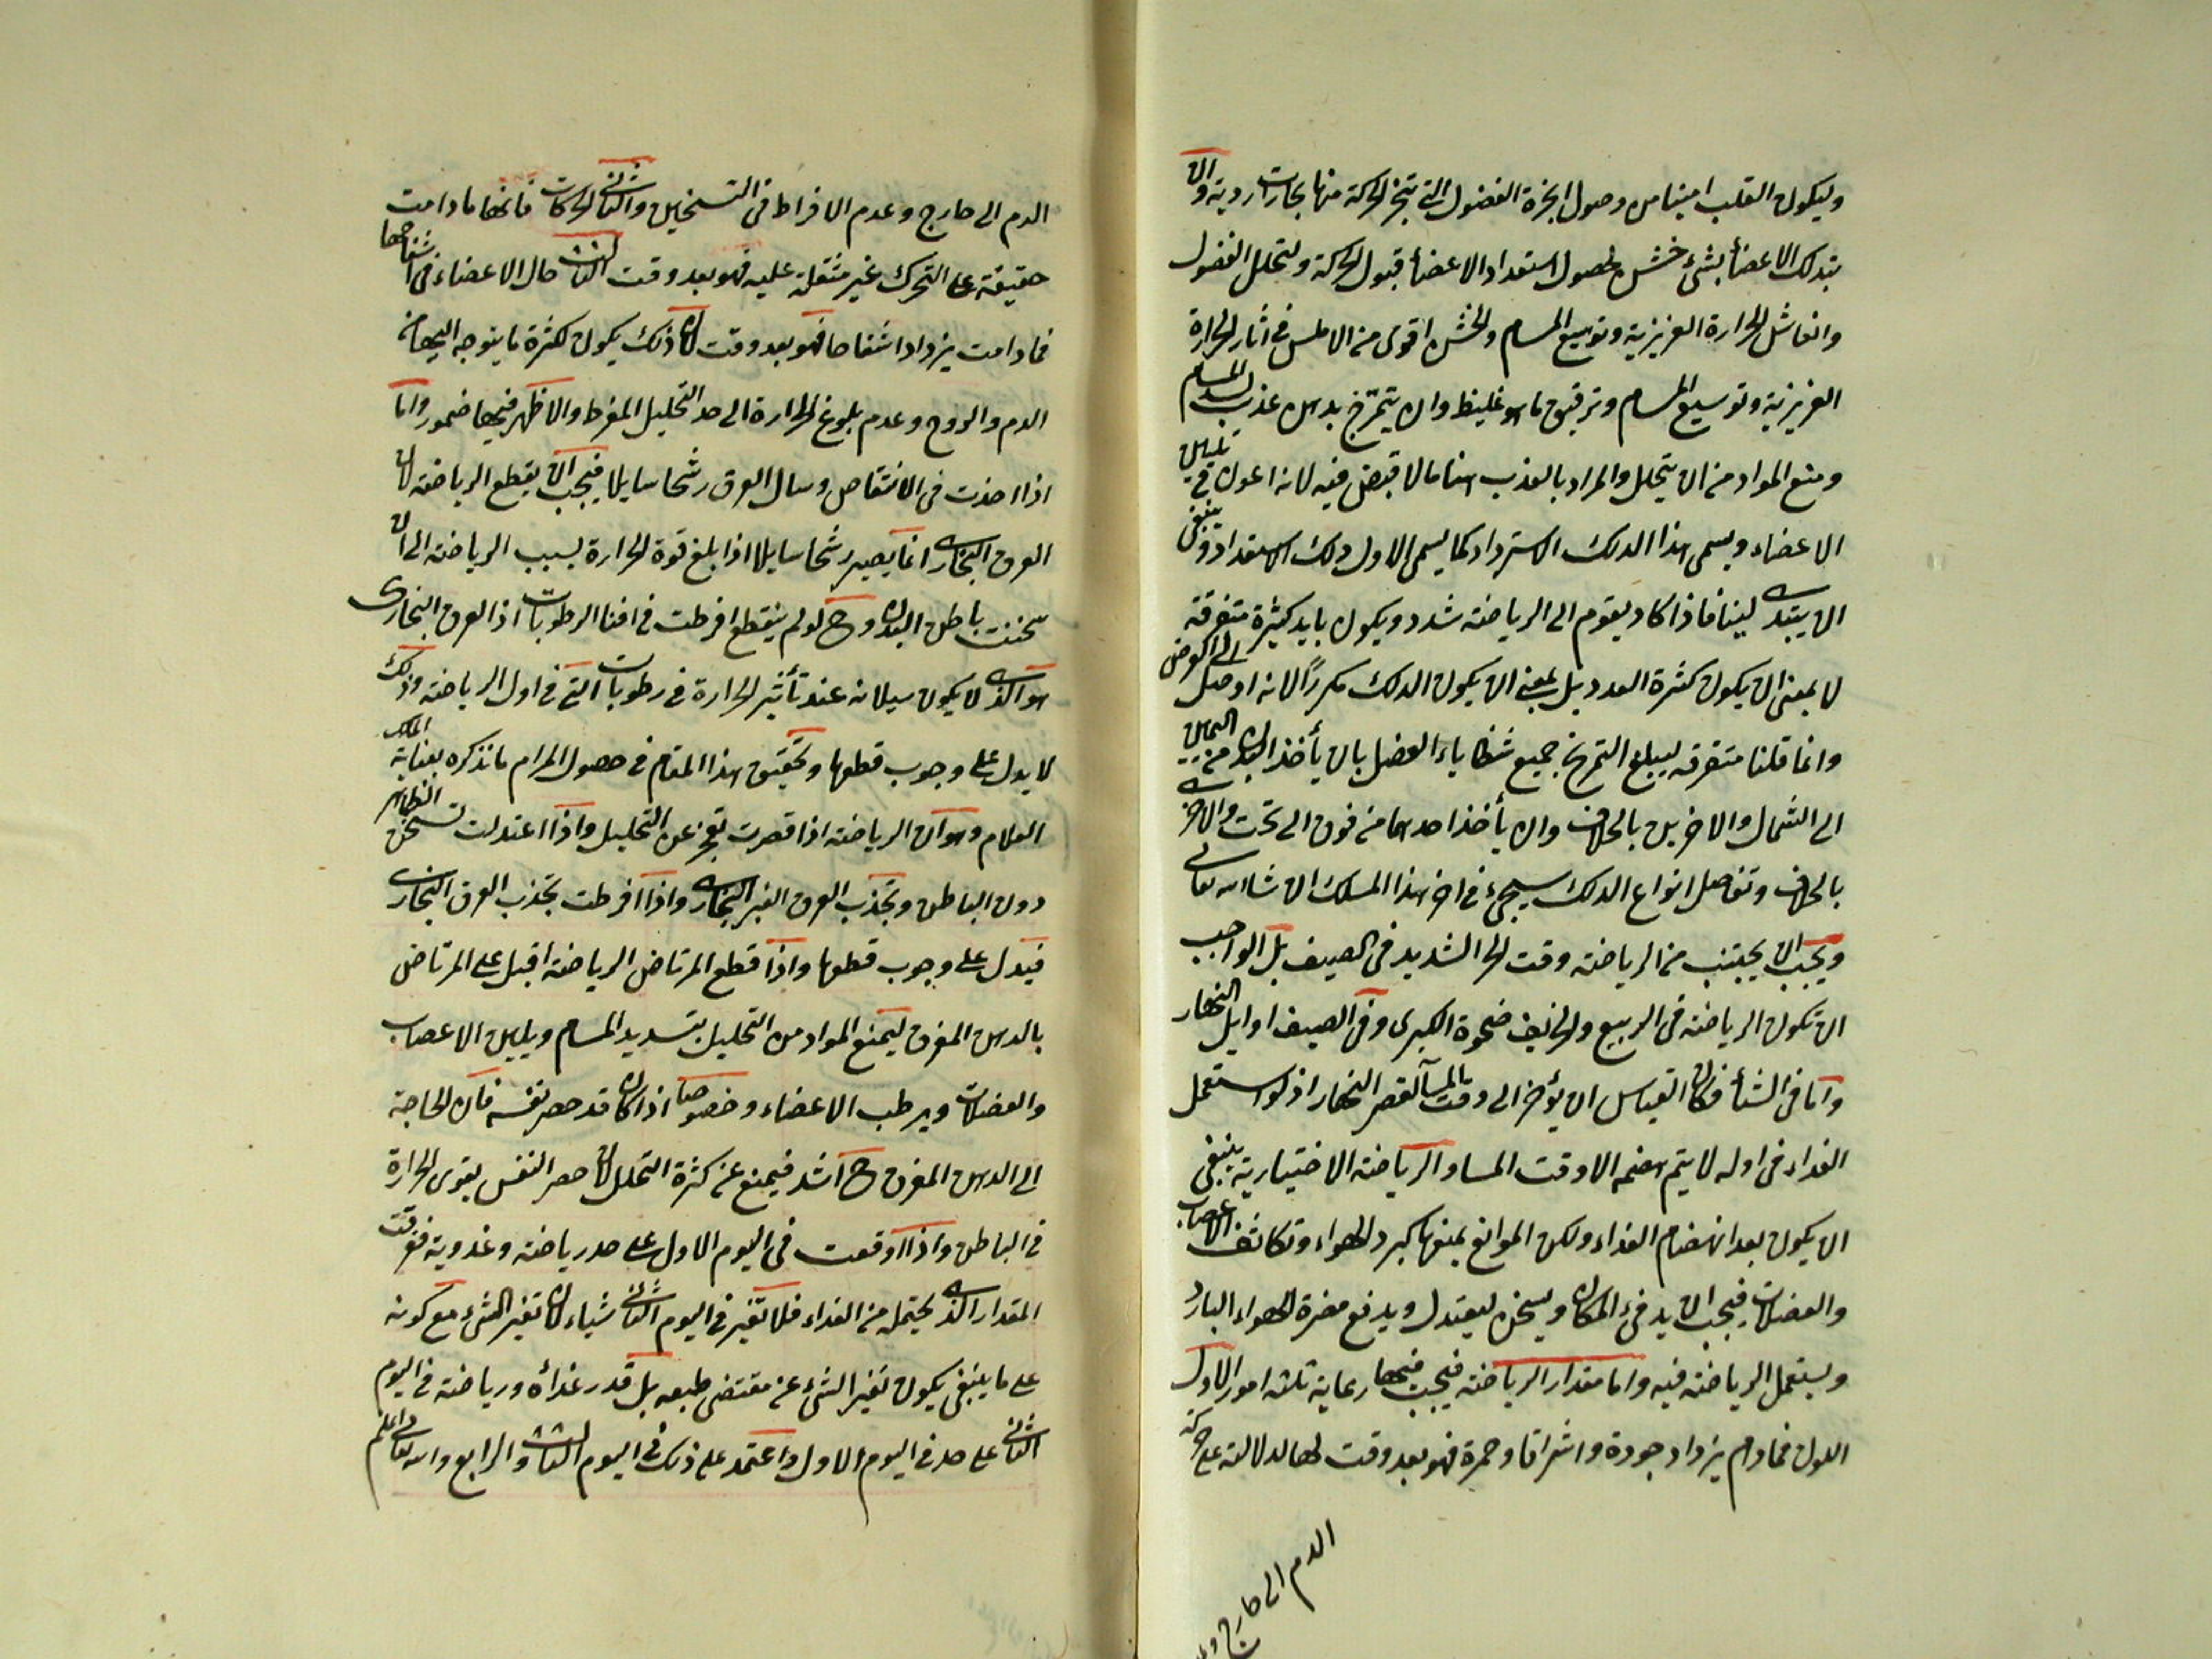 وليكون القلب امينا من وصول ابخرة الفضول التي تبخر الحركة منها بخارات ردية وان
يتدلك الاعضأ بشئ خشن لحصول استعداد الاعضأ قبول الحركة ولتحلل الفضول
وانعاش الحرارة الغريزية وتوسيع المسام والخشن اقوى من الاملس في اثار الحرارة
الغريزية وتوسيع المسام وترقيق ما هو غليظ وان يتمرخ بدهن عذب لسد المسام
ومنع المواد من ان يتحلل والمراد بالعذب هنا ما لا قبض فيه لانه اعون في تليين
الاعضاء ويسمى هذا الدلك الاسترداد كما يسمى الاول دلك الاستعداد وينبغي
ان يبتدى لينا فاذا كاد يقوم الى الرياضة شدد ويكون بايد كثيرة متفرقة
لا بمعنى ان يكون كثرة العدد بل بمعنى ان يكون الدلك مكررًا لانه اوصل الى الغرض
وانما قلنا متفرقة ليبلغ التمريخ جميع شظاياء العضل بان يأخذ اليدان من اليمين
الى الشمال والاخريين بالخلاف وان يأخذ احدهما من فوق الى تحت والاخرى
بالخلاف وتفاصل انواع الدلك سيجئ في اخر هذا المسلك ان شاء الله تعالى
ويجب ان يجتنب من الرياضة وقت الحر الشديد في الصيف بل الواجب
ان تكون الرياضة في الربيع والخريف ضحوة الكبرى وفي الصيف اوايل النهار
واما في الشتأ فكان القياس ان يؤخر الى وقت المسآ لقصر النهار اذ لو استعمل
الغداء في اوله لا يتم هضمه الا وقت المسا والرياضة الاختيارية ينبغي
ان يكون بعد انهضام الغداء ولكن الموانع يمنعها كبرد الهواء وتكاثف الاعصاب
والعضلات فيجب ان يدفئ المكان ويسخن ليعتدل ويدفع مضرة الهواء البارد
ويستعمل الرياضة فيه واما مقدار الرياضة فيجب فيها رعاية ثلثة امور الاول
اللون فما دام يزداد جودة واشراقا وحمرة فهو بعد وقت لها لدلالته على حركة
الدم الى خارج و
الدم الى خارج وعدم الافراط في التسخين والثاني الحركات فانها ما دامت
خفيفة على التحرك غير مثقلة عليه فهو بعد وقت الثالث حال الاعضاء في انتفاخها
فما دامت يزداد انتفاخا فهو بعد وقت لان ذلك يكون لكثرة ما يتوجه اليها من
الدم والروح وعدم بلوغ الحرارة الى حد التحليل المفرط والا ظهر فيها ضمور واما
اذا اخذت في الانتقاص وسال العرق رشحا سايلا فيجب ان يقطع الرياضة لان
العرق البخارى انما يصير رشحا سايلا اذا بلغ قوة الحرارة بسبب الرياضة الى ان
سخنت باطن البدن وح لو لم ينقطع افرطت في افنا الرطوبات اذ العرق البخارى
هو الذى لا يكون سيلانه عند تأثير الحرارة في رطوبات التي في اول الرياضة وذلك
لا يدل على وجوب قطعها وتحقيق هذا المقام في حصول المرام ما نذكره بعناية الملك
العلام وهو ان الرياضة اذا قصرت تعجز عن التحليل واذا اعتدلت تسخن الظاهر
دون الباطن وتجذب العرق الغير البخارى واذا افرطت تجذب العرق البخارى
فيدل على وجوب قطعها واذا قطع المرتاض الرياضة اقبل على المرتاض
بالدهن المغرق ليمنع المواد من التحليل بتسديد المسام ويليين الاعصاب
والعضلات ويرطب الاعضاء وخصوصا اذا كان قد حصر نفسه فان الحاجة
الى الدهن المغرق ح اشد فيمنع عن كثرة التحلل لان حصر النفس يقوى الحرارة
في الباطن واذا وقعت في اليوم الاول على حد رياضة وغدوية فوقت
المقدار الذى يحتمله من الغداء فلا تغير في اليوم الثاني شياء لان تغير الشئ مع كونه
على ما ينبغي يكون تغير الشئ عن مقتضى طبعه بل قدر غدأه ورياضة في اليوم
الثاني على حد في اليوم الاول واعتمد على ذلك في اليوم الثالث والرابع والله تعالى اعلم